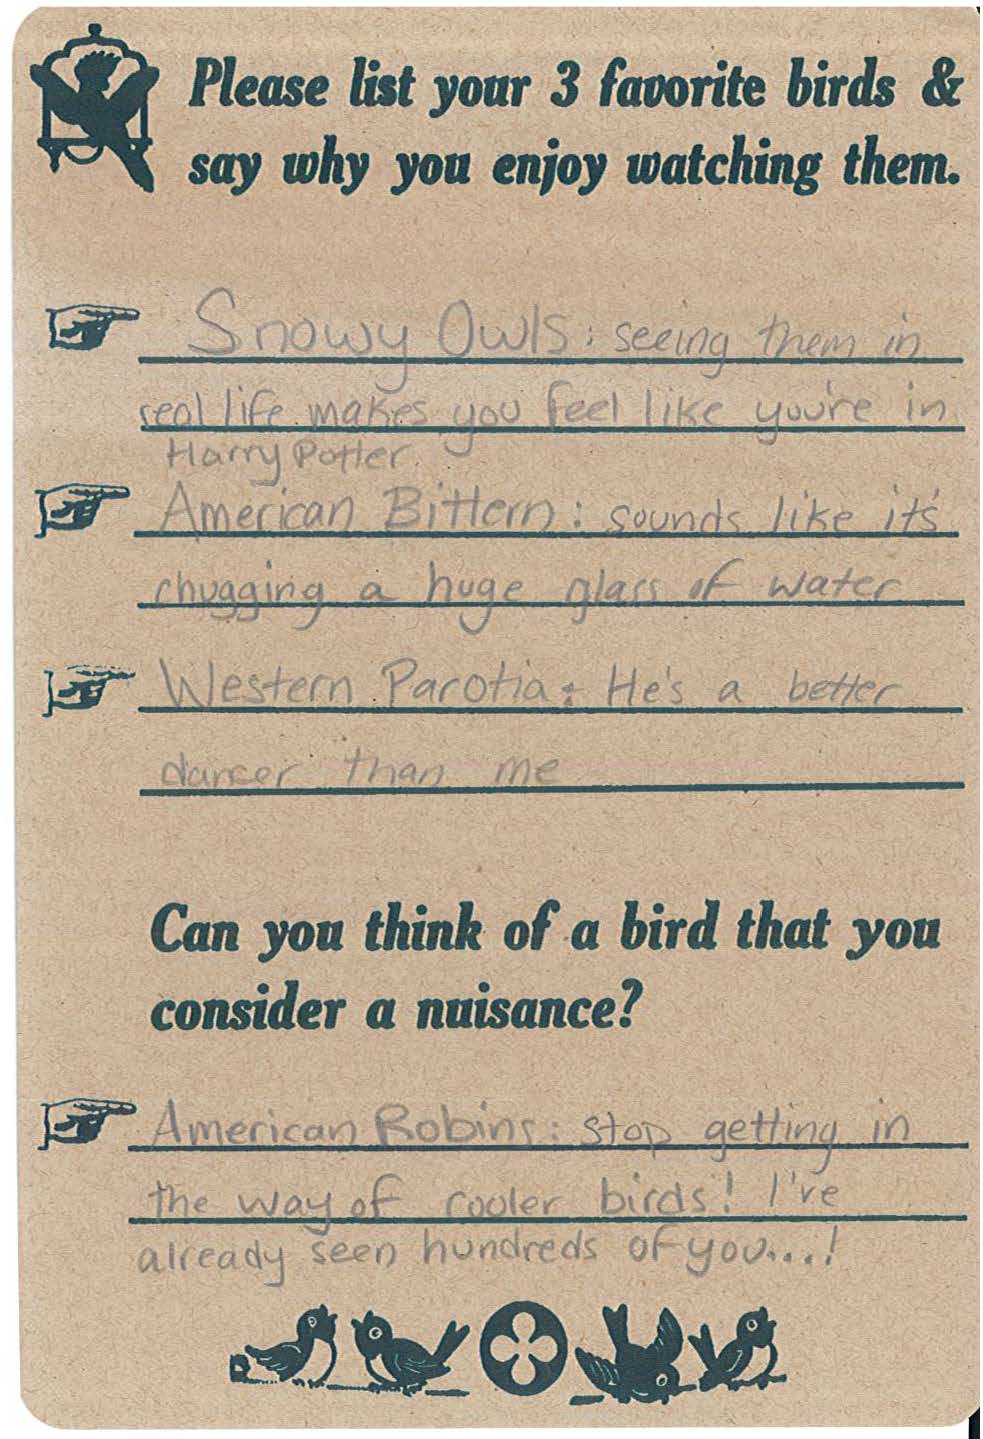 Please list your 3 favorite birds &
say why you enjoy watching them.
Snowy Owls: seeing them in
real life makes you feel like you're in
Harry Potter.
American Bittern: sounds like it's
chugging a huge glass of water
Western Parotia: He's a better
dancer than me
Can you think of a bird that you
consider a nuisance?
American Robins: stop getting in
the way of cooler birds! I've
already seen hundreds of you...!